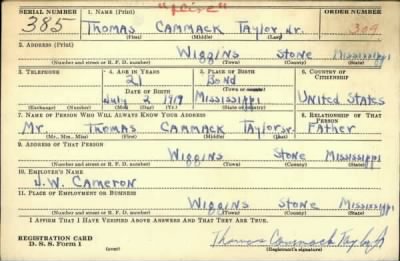 "Price"
SERIAL NUMBER 1. NAME (Print) ORDER NUMBER
385 Thomas Cammack Taylor Jr. 309
(First) (Middle) (Last)
2. ADDRESS (Print)
Wiggins Stone Mississippi
(Number and street or R. F. D. number) (Town) (County) (State)
3. TELEPHONE 4. AGE IN YEARS 5. PLACE OF BIRTH 6. COUNTRY OF CITIZENSHIP
21 Bond
DATE OF BIRTH (Town or county)
July 2 1919 Mississippi United States
(Exchange) (Number) (Mo.) (Day) (Yr.) (State or country)
7. NAME OF PERSON WHO WILL ALWAYS KNOW YOUR ADDRESS 8. RELATIONSHIP OF THAT PERSON
Mr. Thomas Cammack Taylor Sr. Father
(Mr., Mrs., Miss) (First) (Middle) (Last)
9. ADDRESS OF THAT PERSON
Wiggins Stone Mississippi
(Number and street or R. F. D. number) (Town) (County) (State)
10. EMPLOYER'S NAME
J.W. Cameron
11. PLACE OF EMPLOYMENT OR BUSINESS
Wiggins Stone Mississippi
(Number and street or R. F. D. number) (Town) (County) (State)
I AFFIRM THAT I HAVE VERIFIED ABOVE ANSWERS AND THAT THEY ARE TRUE.
REGISTRATION CARD
D. S. S. Form 1 Thomas Cammack Taylor Jr
(over) (Registrant's signature)